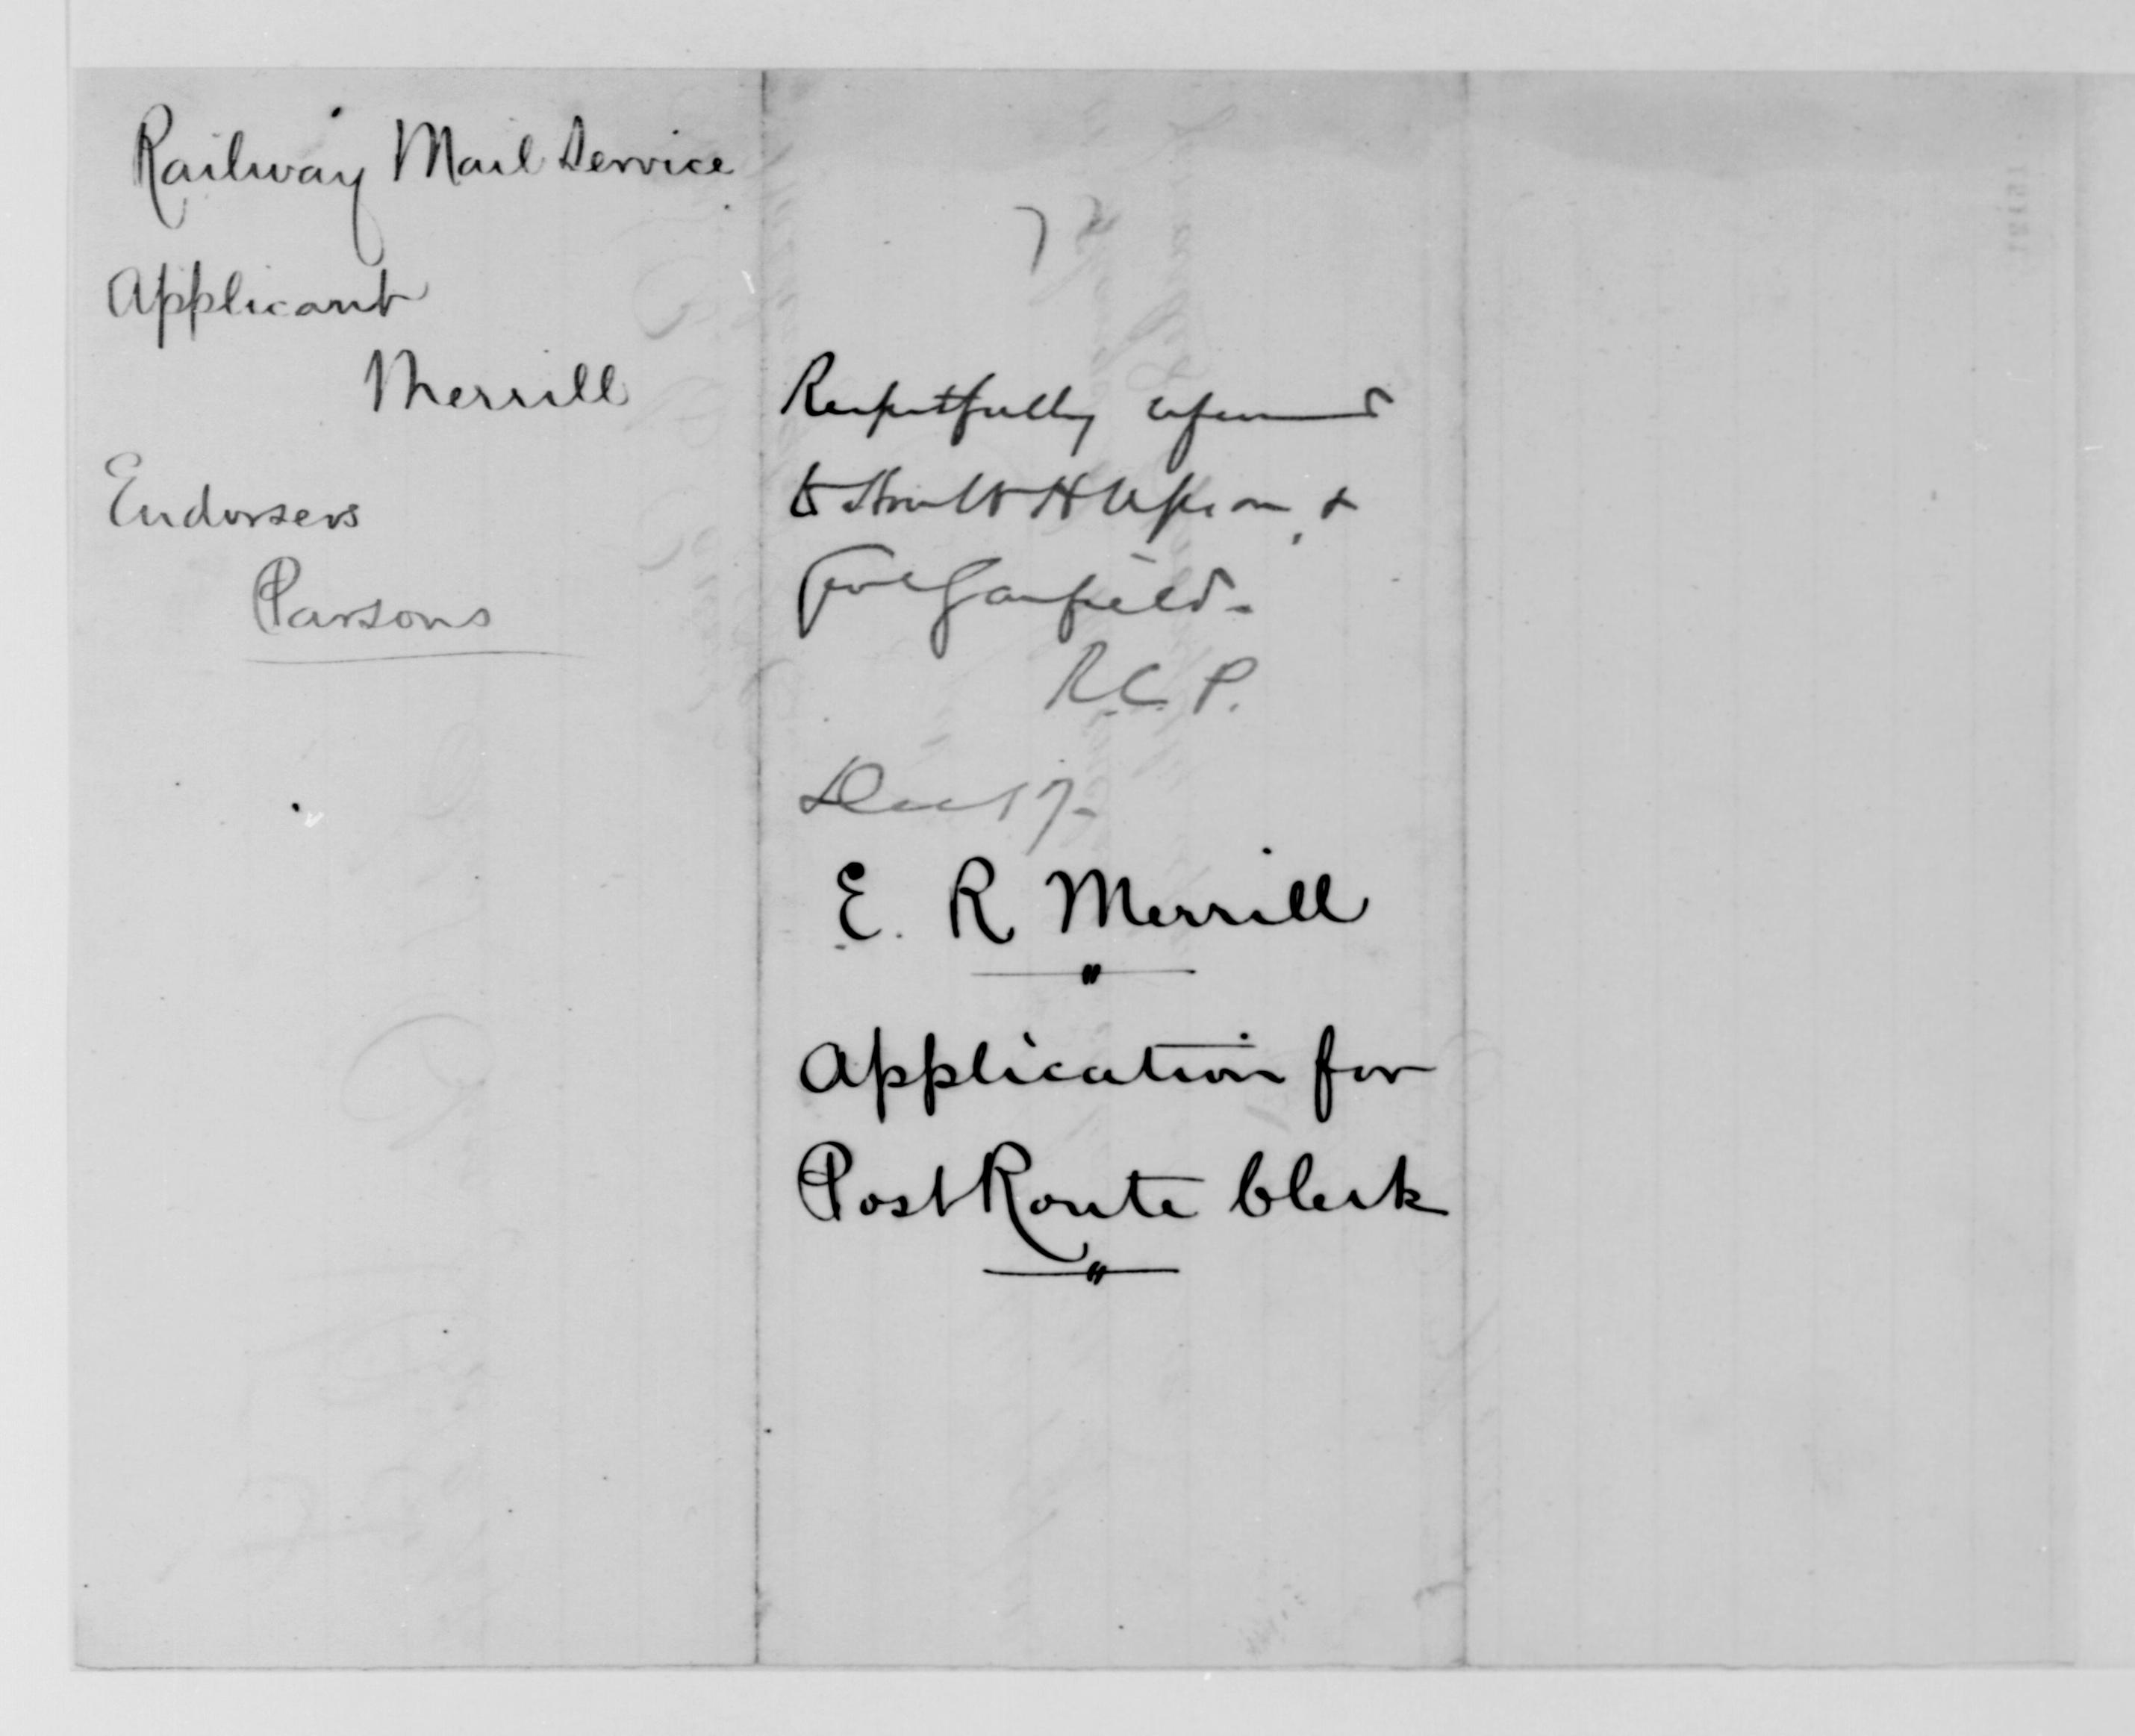 Railway Mail Service
Applicant
Merrill
Endorsers
Parsons
7
Respectfully referred
to Hon W H Upson, &
Gen Garfield-
R.C.P.
Dec 17-
E. R Merrill
Application for
Post Route Clerk